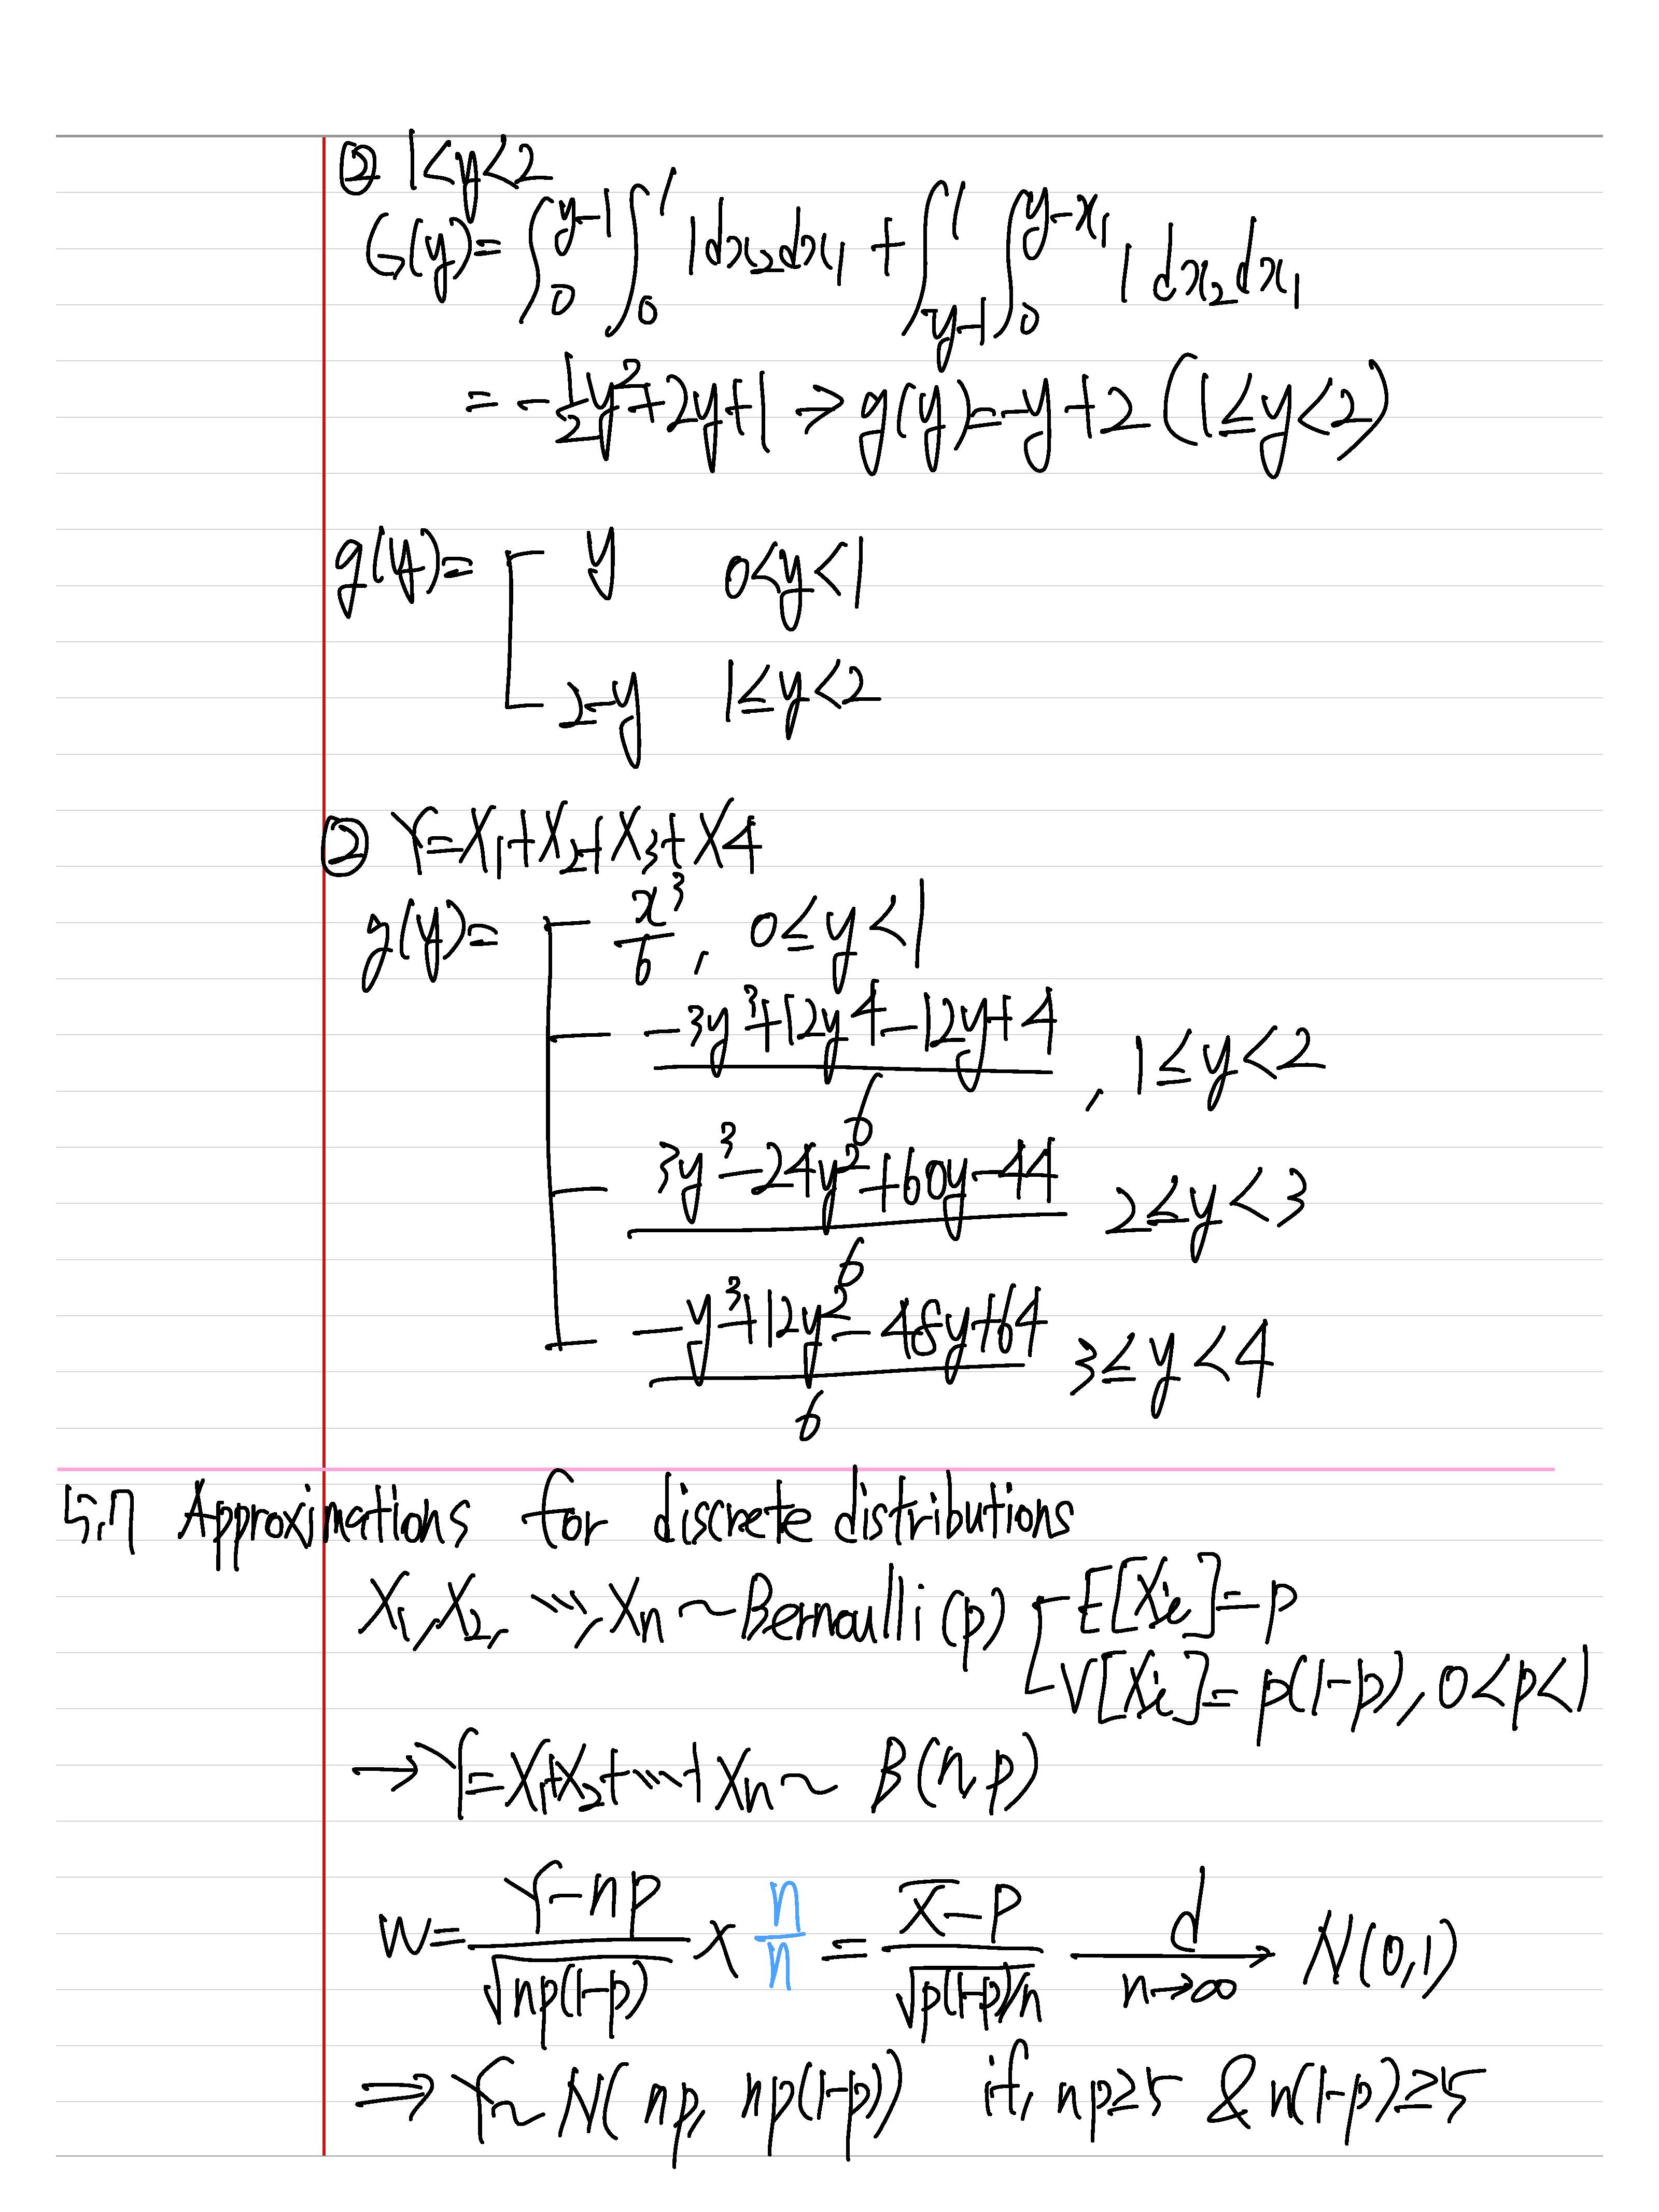 ② 1<y<2
G(y)=∫₀^{y-1}∫₀^1 1dx₂dx₁ + ∫_{y-1}^1∫₀^{y-x₁} 1 dx₂dx₁
= -½y²+2y+1 → g(y)=-y+2 (1≤y<2)
g(y)= y 0<y<1
2-y 1≤y<2
② Y=X₁+X₂+X₃+X4
g(y)= x³/6, 0≤y<1
(-3y³+12y4-12y+4)/6, 1≤y<2
(3y³-24y²+60y-44)/6 2≤y<3
(-y³+12y²-48y+64)/6 3≤y<4
5.7 Approximations for discrete distributions
X₁, X₂, ⋯, Xn ~ Bernoulli (p) E[Xi]=p
V[Xi]=p(1-p), 0<p<1
→ Y=X₁+X₂+⋯+Xn ~ B(n,p)
W= (Y-np)/√(np(1-p)) × n/n = (X̄-p)/√(p(1-p)/n) d/(n→∞)→ N(0,1)
⇒ Y~N(np, np(1-p)) if, np≥5 & n(1-p)≥5